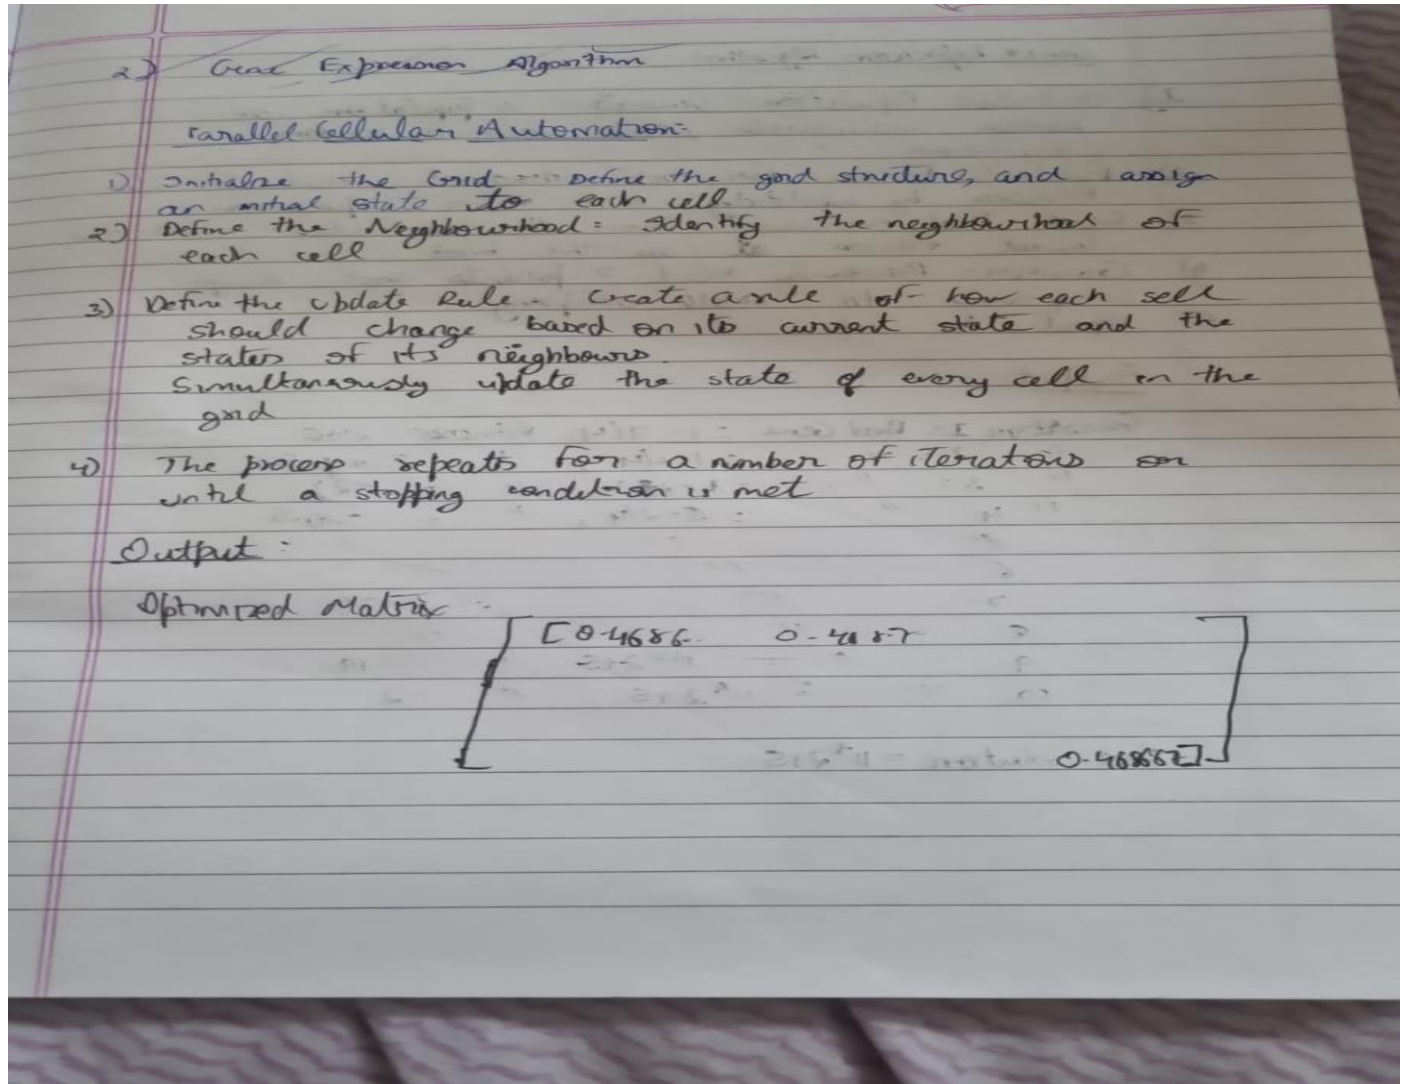 2) Gene Expression Algorithm
Parallel Cellular Automation:-
1) Initialize the Grid - Define the grid structure, and assign
an initial state to each cell.
2) Define the Neighbourhood: Identify the neighbourhood of
each cell
3) Define the Update Rule - Create a rule of how each sell
should change based on its current state and the
states of its neighbours.
Simultaneously update the state of every cell in the
grid
4) The process repeats for a number of iterations or
until a stopping condition is met
Output :
Optimized Matrix :
[ [0.4686
0.46867] ]